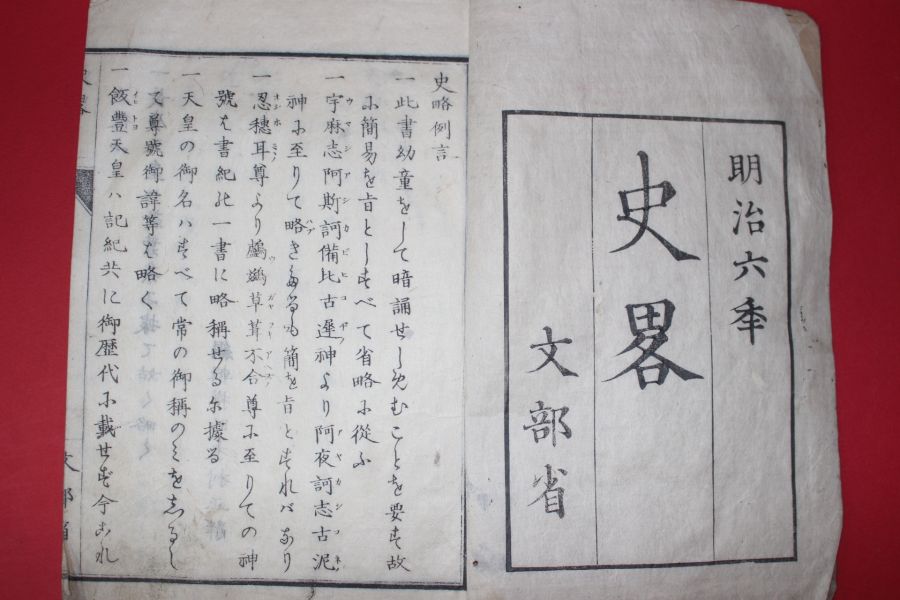 明治六年
史畧
文部省
史略例言
一此書幼童をして暗誦せしめむことを要す故
に簡易を旨としすべて省略に從ふ
一宇麻志阿斯訶備比古遲神より阿夜訶志古泥
神に至りて略きたるも簡を旨とすればなり
一忍穗耳尊より鸕鷀草葺不合尊に至りての神
號は書紀の一書に略稱せるに據る
一天皇の御名ハすべて常の御稱のミを志るし
て尊號御諱等は略く
一飯豐天皇ハ記紀共に御歴代に載せず今これ